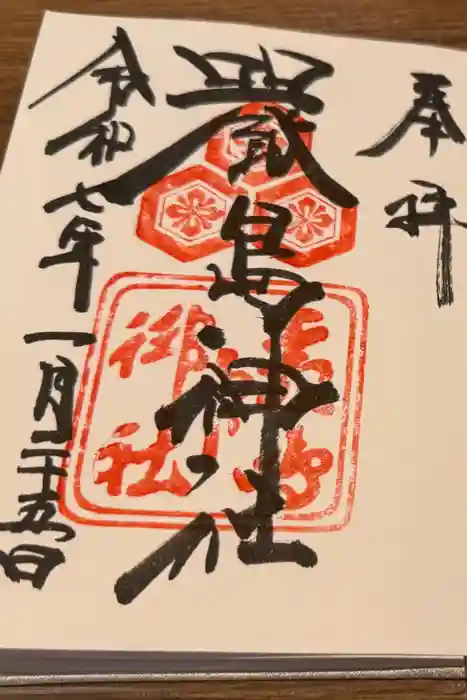 奉拝
嚴島神社
令和七年一月二十五日
嚴島
御社